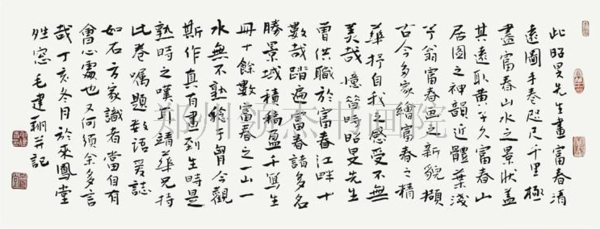 此昭昊先生畫富春清
遠圖手卷咫尺千里極
盡富春山水之景狀蓋
其遠取黃子久富春山
居圖之神韻近體葉淺
予翁富春画之新貌擷
古今多家繪富春之精
華抒自我之感受不無
美哉憶昔時昭昊先生
曾供職於富春江畔十
數載踏遍富春諸多名
勝景域積稿盈千寫生
冊十餘數富春之一山一
水無不熟終于胷今觀
斯作真有畫到生時是
熟時之嘆耳靖華兄持
此卷囑題數語爰誌
如右方家識者當自有
會心處也又何須余多言
哉丁亥冬月於來鳳堂
窓毛建 并記
州 杰书画院